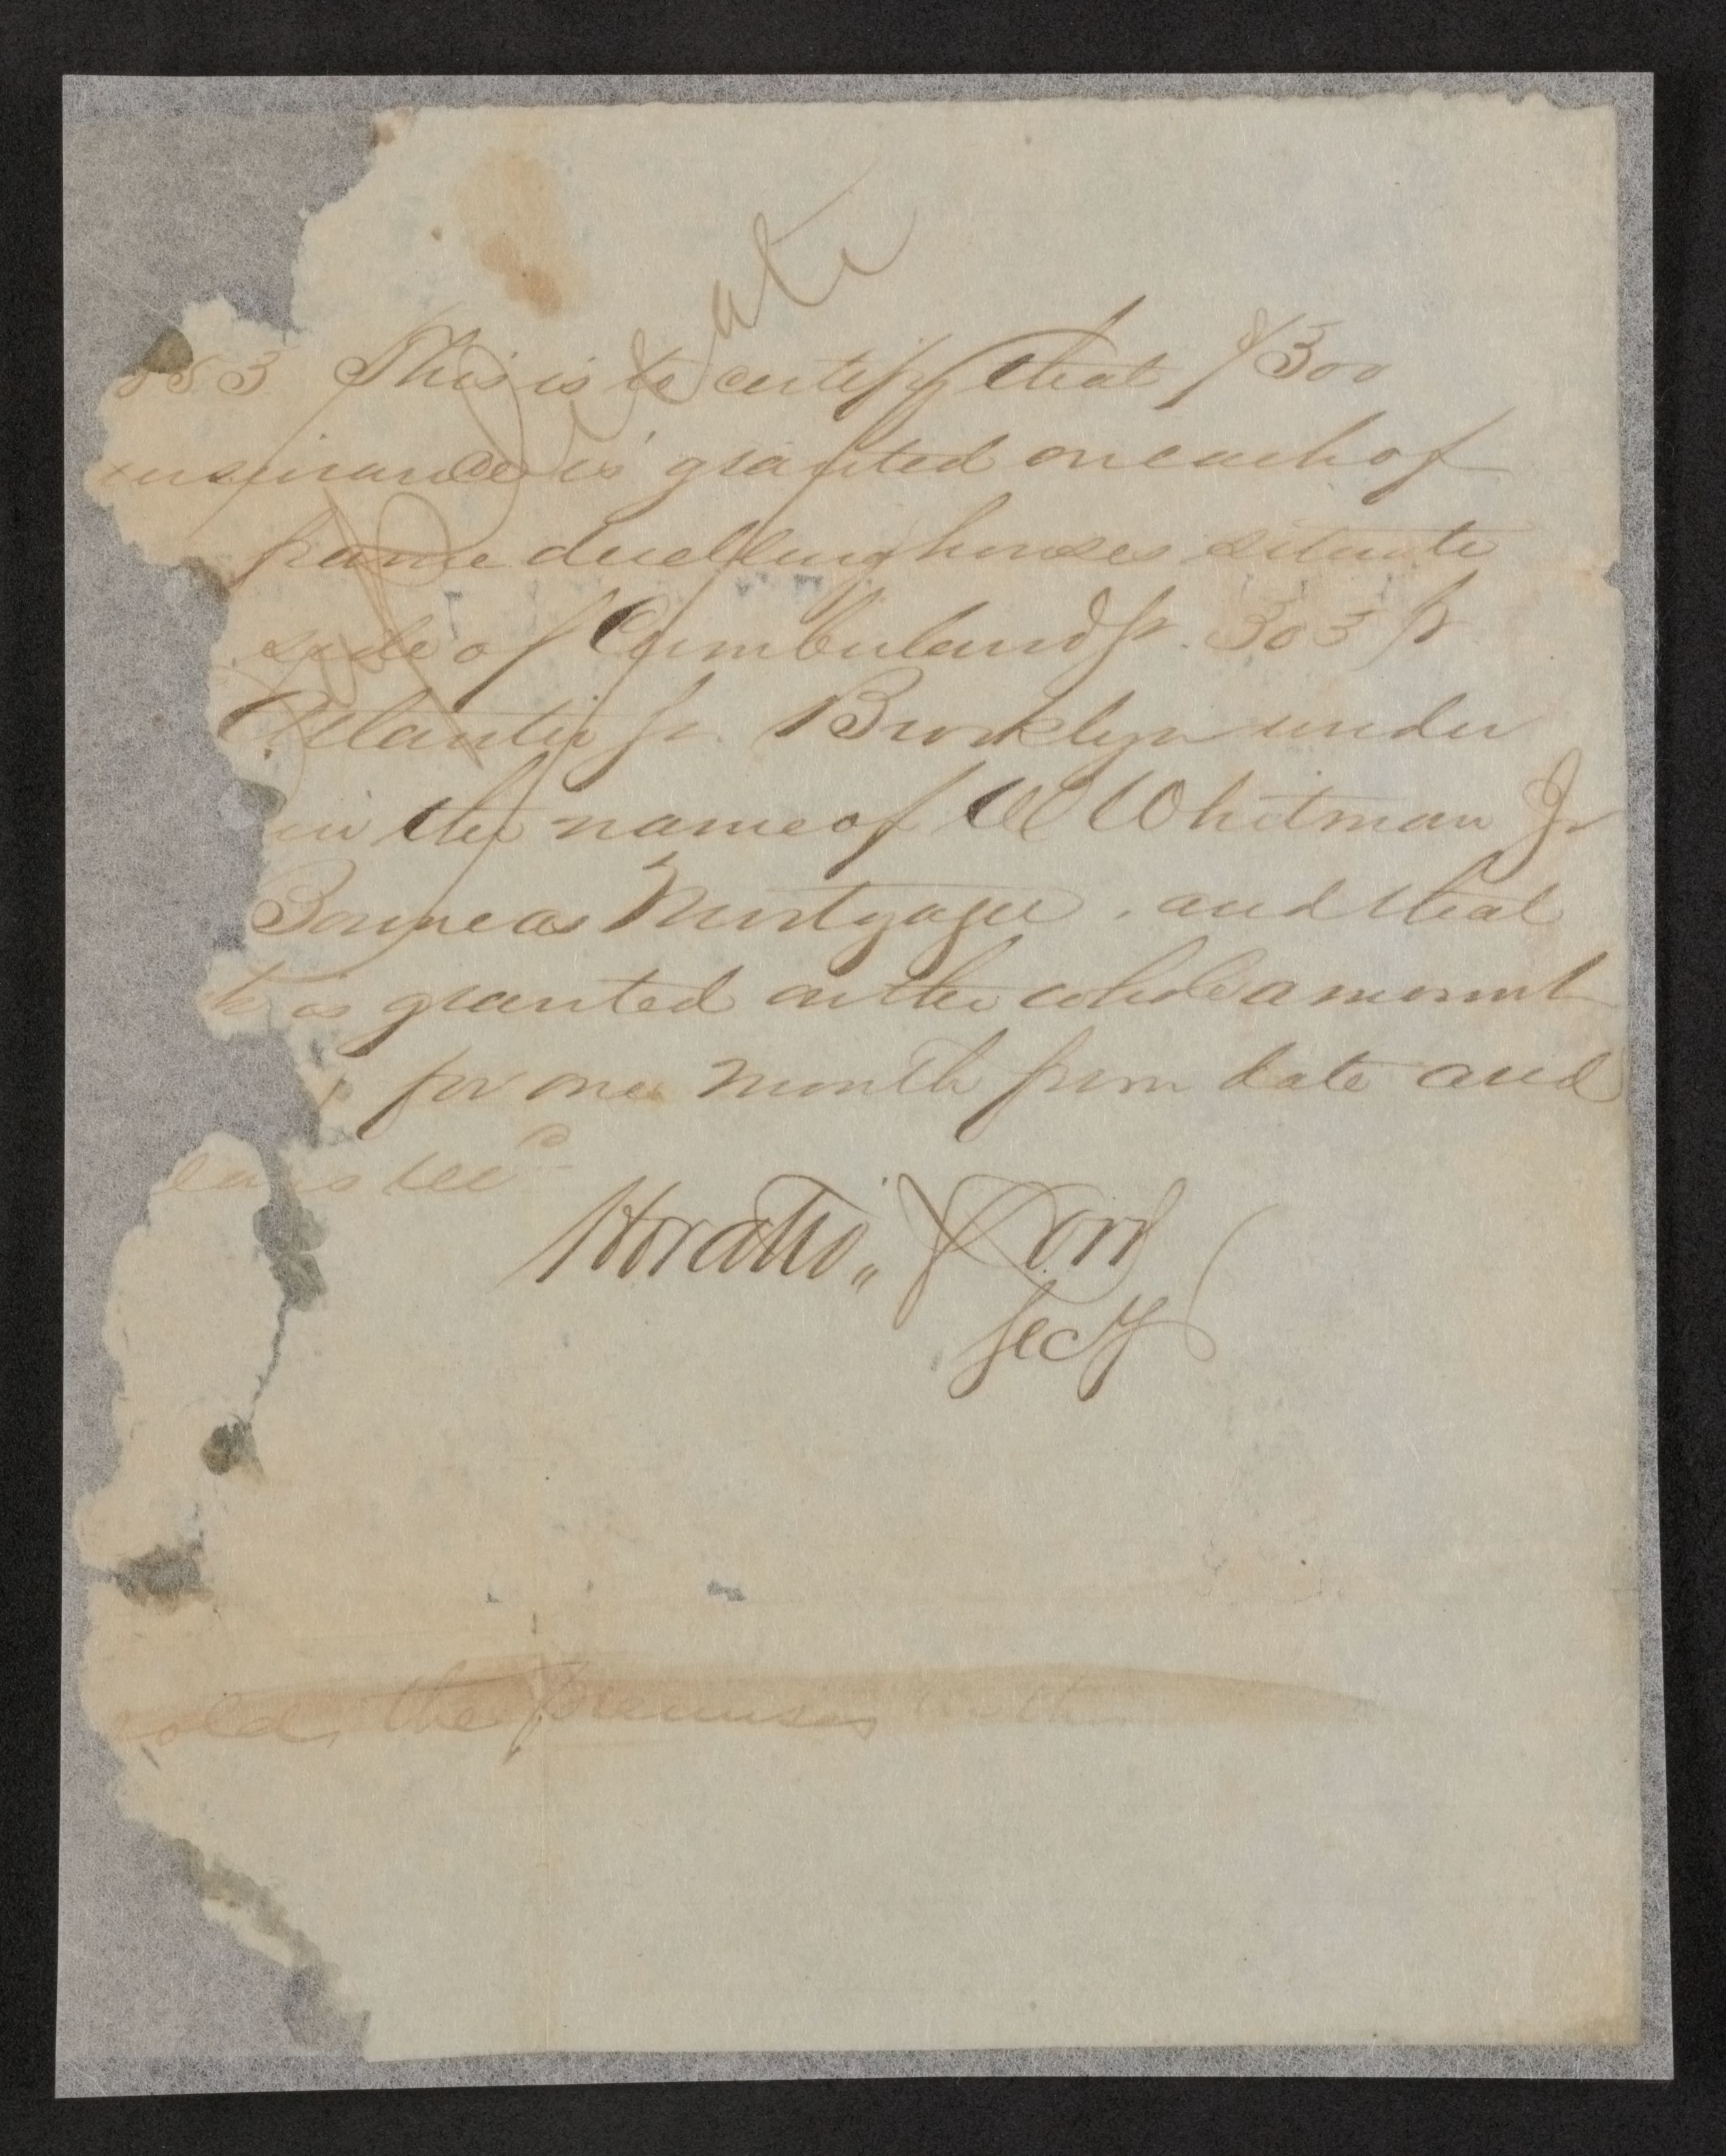 853 This is to certify that $300
insurance is granted on each of
frame dwelling houses situate
side of Cumberland St. 303 ft
Atlantic St. Brooklyn under
in the name of W Whitman Jr
Bowne as Mortgagee, and that
is granted on the whole amount
for one month from date and
Horatio Dorr
Secy
sold, the premises